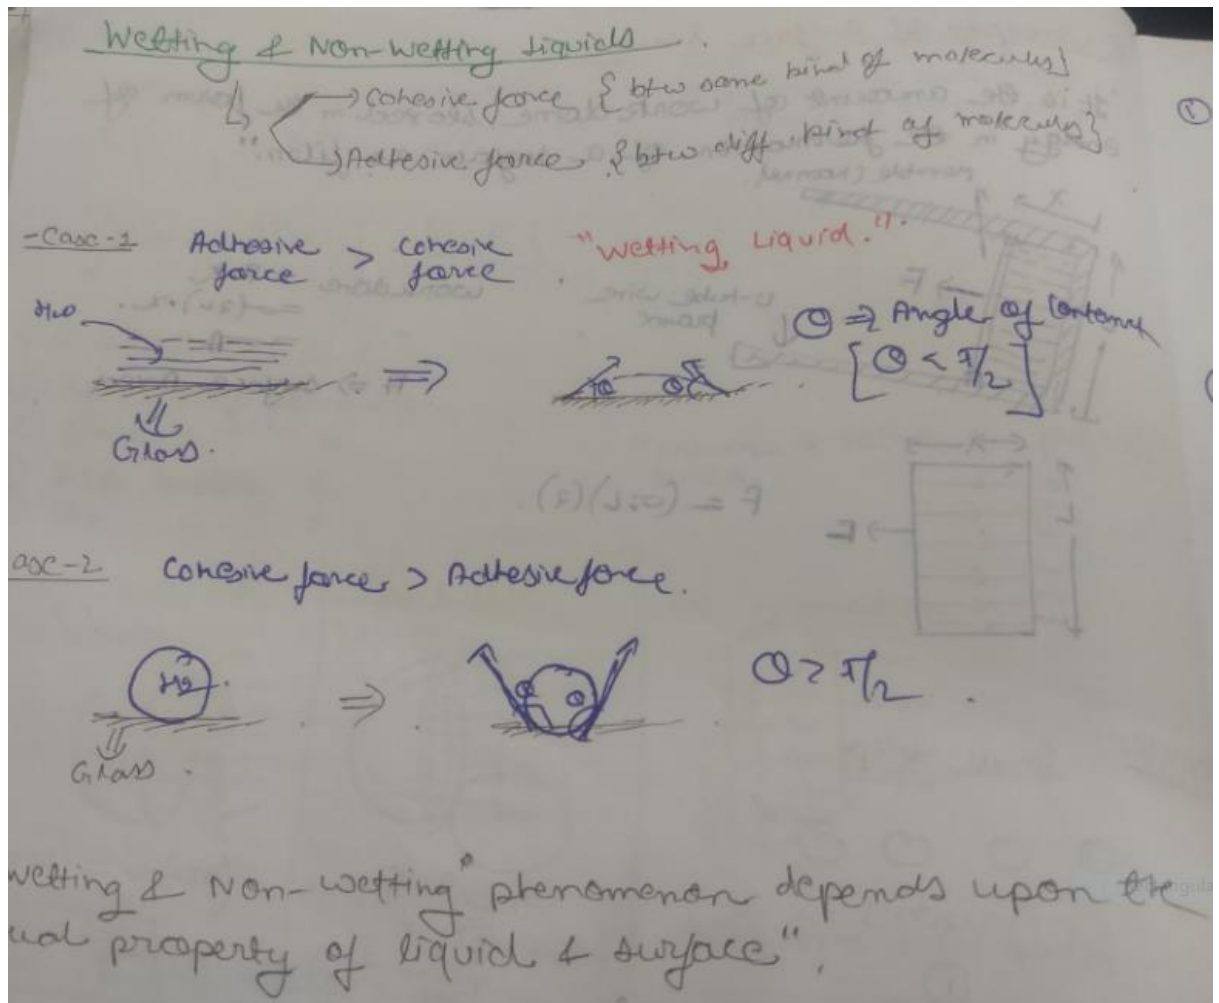 Wetting & Non-Wetting Liquids
→ Cohesive force { btw same kind of molecules}
→ Adhesive force { btw diff kind of molecules}
①
-Case-1 Adhesive force > Cohesive force. "Wetting Liquid."
H₂O
θ ⇒ Angle of
⇒ θ θ [θ < π/2]
Glass.
ase-2 Cohesive force > Adhesive force.
Hg ⇒ θ θ θ > π/2.
Glass.
wetting & Non-wetting" phenomenon depends upon the
ual property of liquid & surface".
F = (2)
F
L